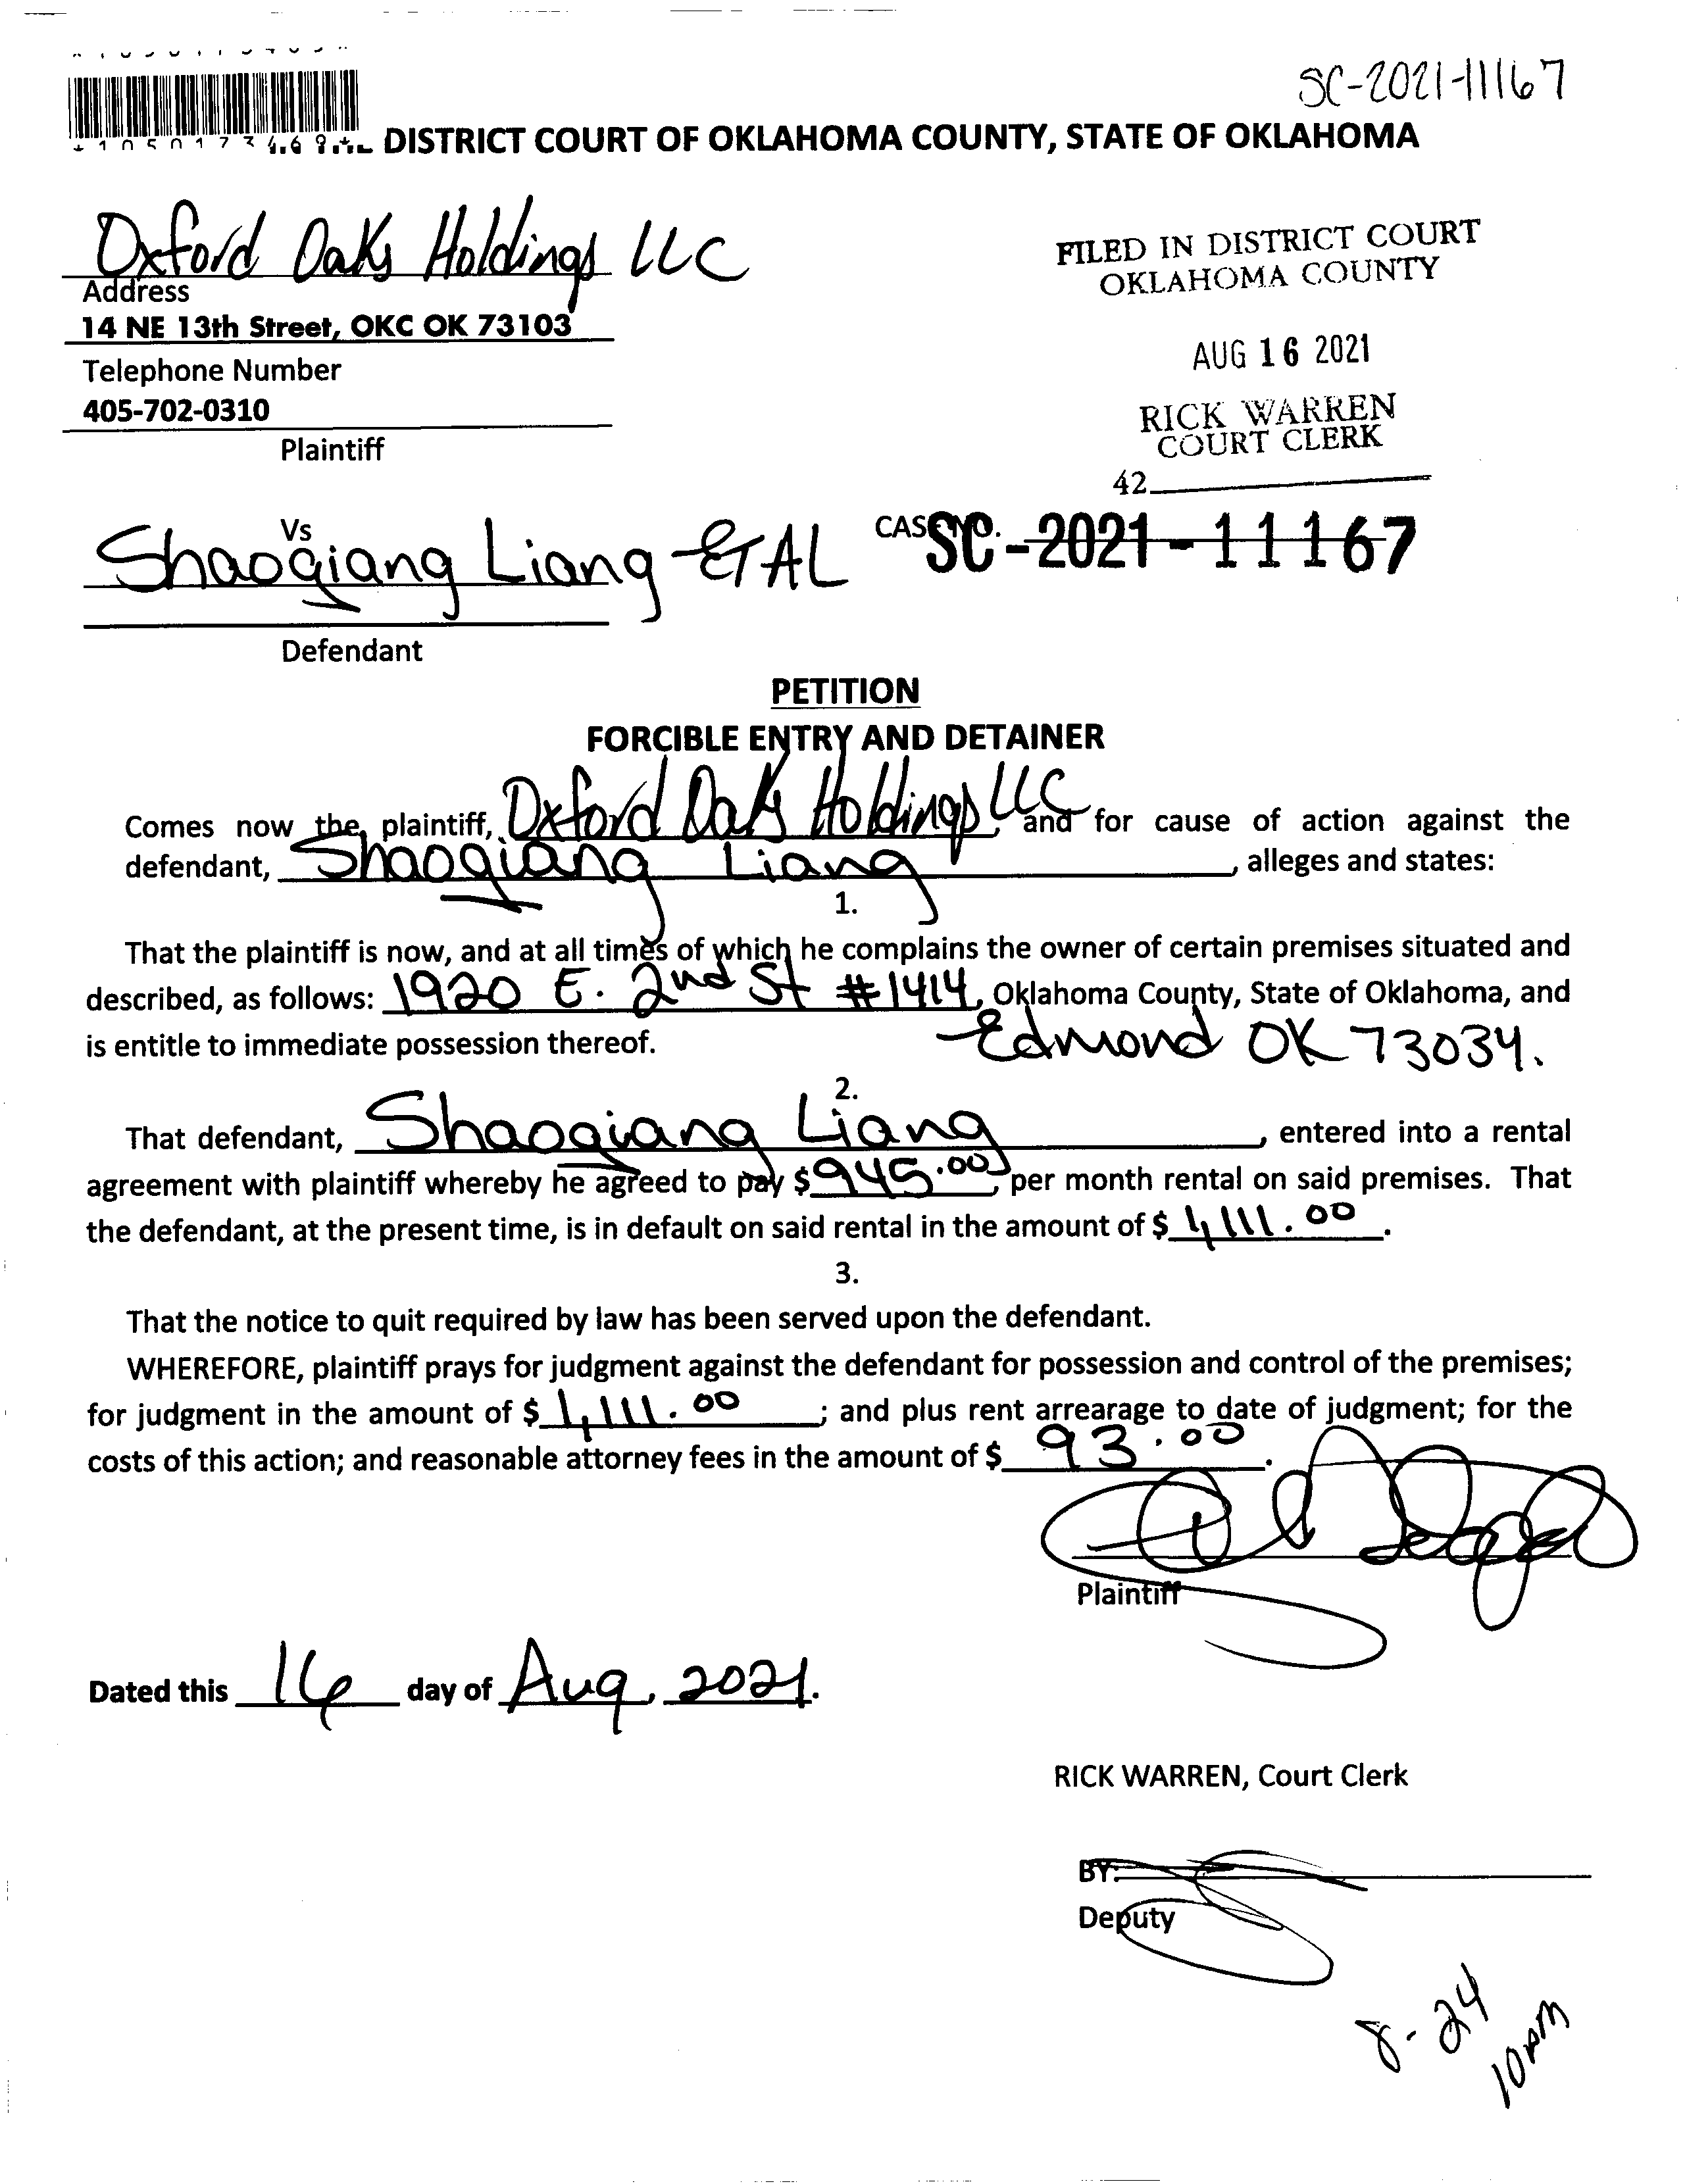 SC-2021-11167
DISTRICT COURT OF OKLAHOMA COUNTY, STATE OF OKLAHOMA
Oxford Oaks Holdings LLC
Address
14 NE 13th Street, OKC OK 73103
Telephone Number
405-702-0310
Plaintiff
FILED IN DISTRICT COURT
OKLAHOMA COUNTY
AUG 16 2021
RICK WARREN
COURT CLERK
42
Vs
Shaoqiang Liang ETAL
CASE NO. SC-2021-11167
Defendant
PETITION
FORCIBLE ENTRY AND DETAINER
Comes now the plaintiff, Oxford Oaks Holdings LLC, and for cause of action against the
defendant, Shaoqiang Liang, alleges and states:
1.
That the plaintiff is now, and at all times of which he complains the owner of certain premises situated and
described, as follows: 1920 E. 2nd St #1414, Oklahoma County, State of Oklahoma, and
is entitle to immediate possession thereof. Edmond OK 73034.
2.
That defendant, Shaoqiang Liang, entered into a rental
agreement with plaintiff whereby he agreed to pay $945.00, per month rental on said premises. That
the defendant, at the present time, is in default on said rental in the amount of $1,111.00.
3.
That the notice to quit required by law has been served upon the defendant.
WHEREFORE, plaintiff prays for judgment against the defendant for possession and control of the premises;
for judgment in the amount of $1,111.00; and plus rent arrearage to date of judgment; for the
costs of this action; and reasonable attorney fees in the amount of $93.00.
Plaintiff
Dated this 16 day of Aug, 2021.
RICK WARREN, Court Clerk
BY:
Deputy
8-24
10am